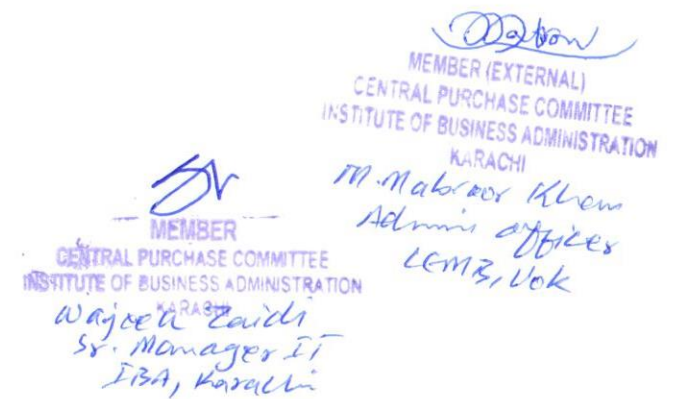 MEMBER (EXTERNAL)
CENTRAL PURCHASE COMMITTEE
INSTITUTE OF BUSINESS ADMINISTRATION
KARACHI
M. Mabroor Khan
Admin officer
CEMB, UoK
MEMBER
CENTRAL PURCHASE COMMITTEE
INSTITUTE OF BUSINESS ADMINISTRATION
KARACHI
Wajeeh Zaidi
Sr. Manager IT
IBA, Karachi